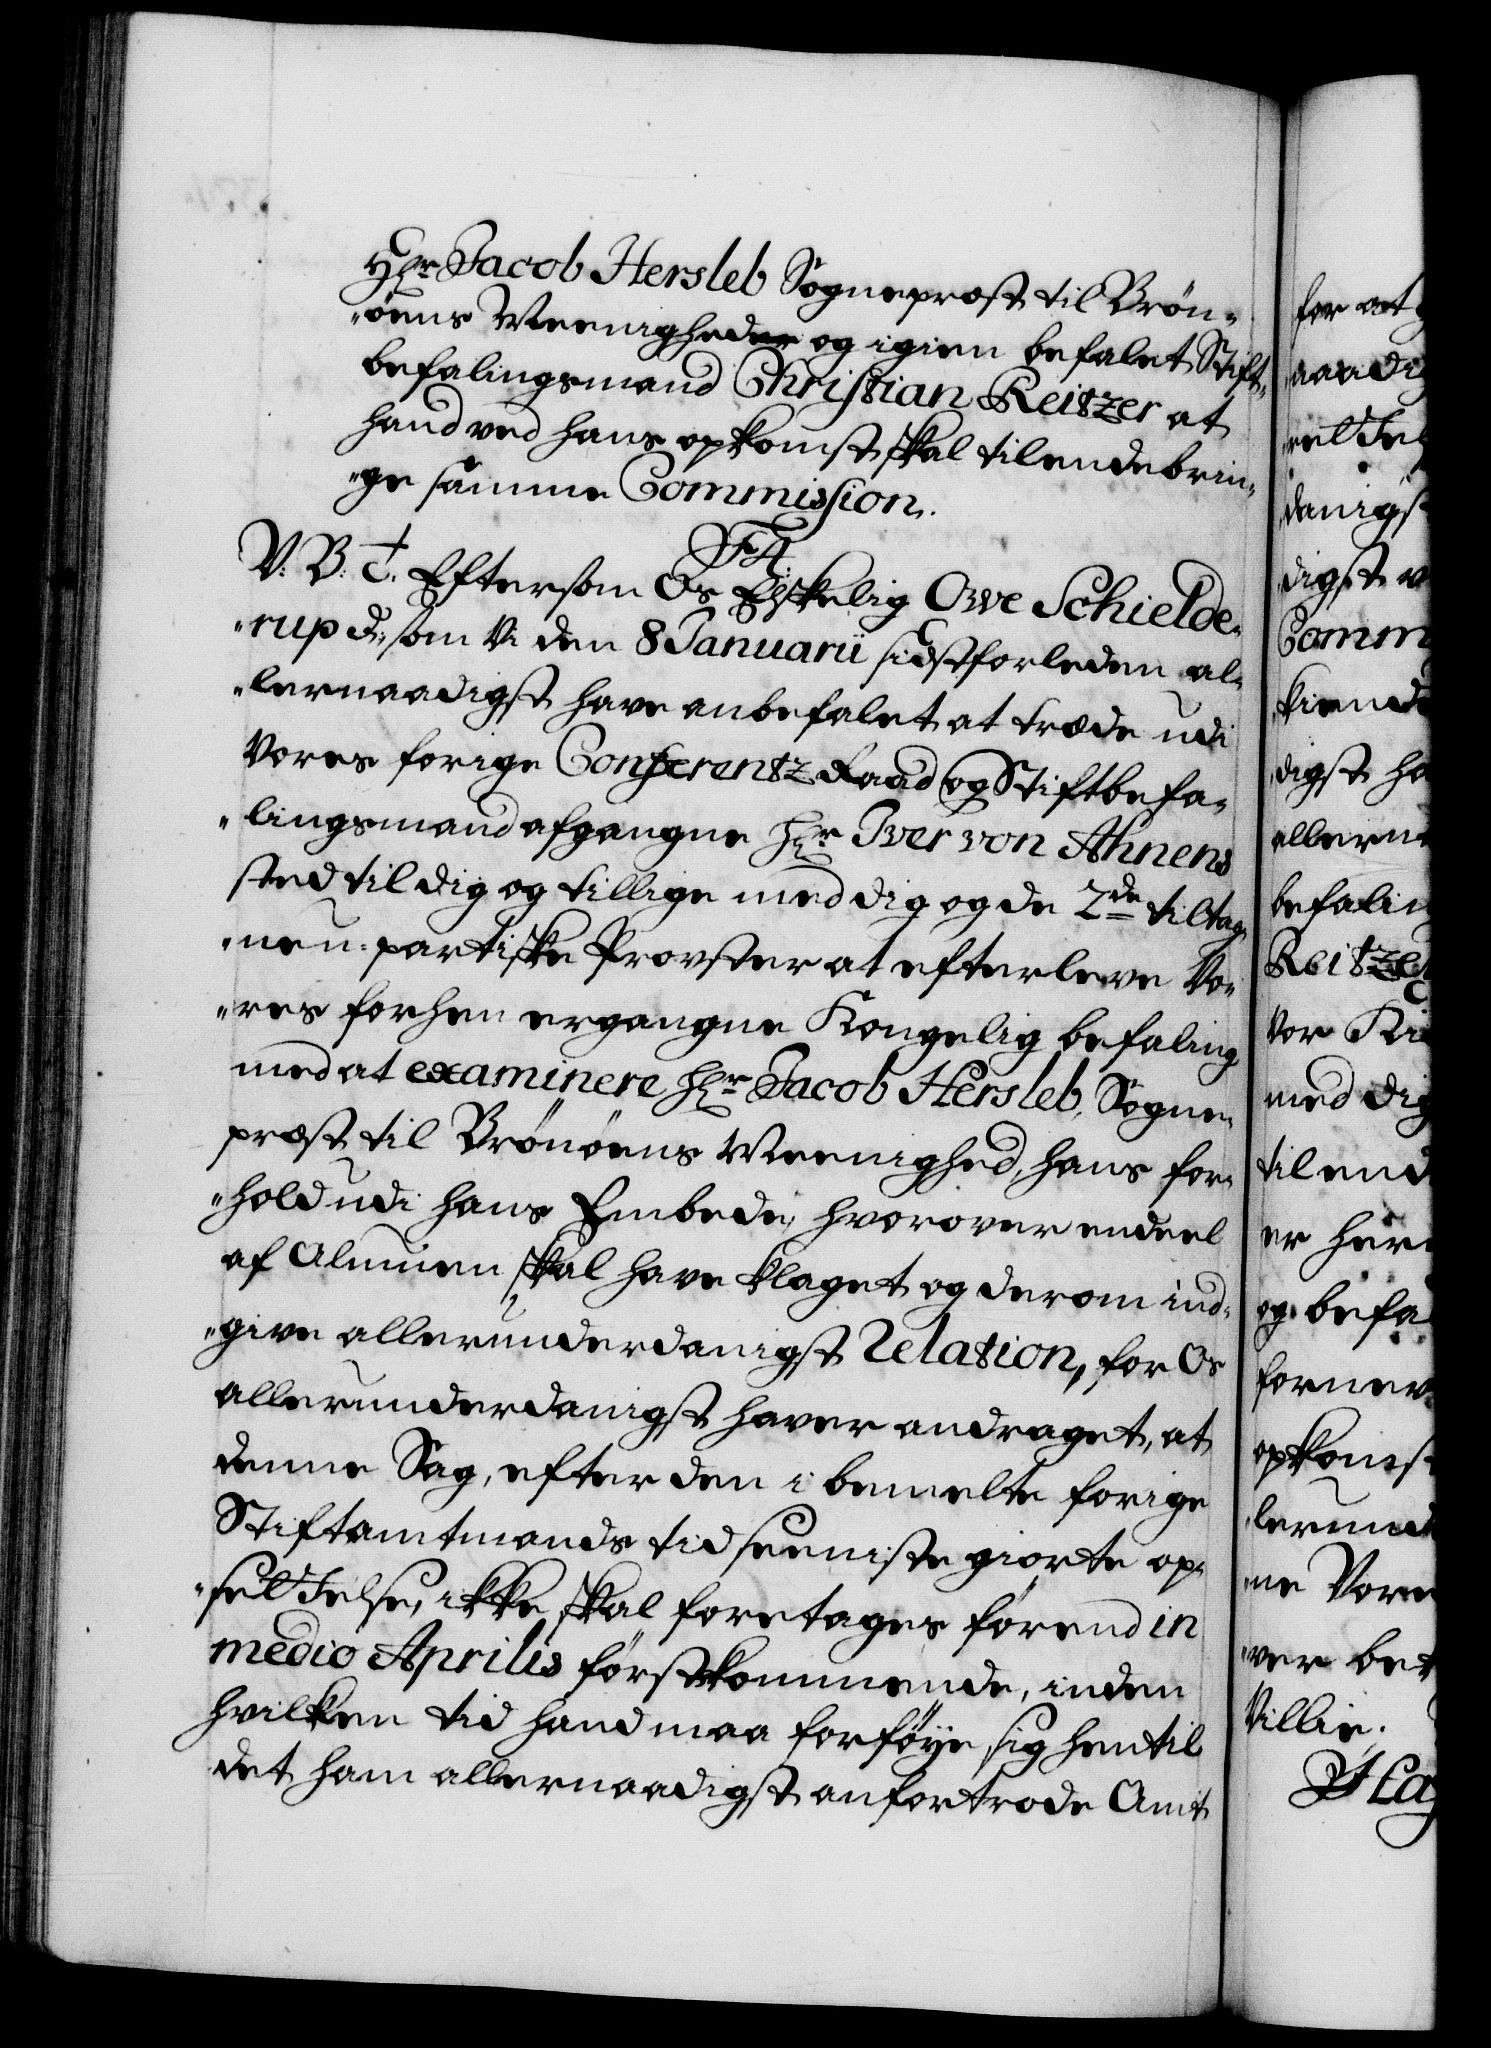 Hr Jacob Hersleb Sogneprest til Brön„
„öens Meenigheder og igien befalet Stift„
befalingsmand Christian Reitzer at
hand ved hans opkomst skal tilendebrin„
„ge samme Commission.
F4.
V: B: T. Eftersom Os Elskelig Ove Schielde„
„rup d: som Vi den 8 Januarii sidstforleden al„
„lernaadigst have anbefalet at træde udi
Vores forige Conferentz Raad og Stiftbefa„
„lingsmand afgangne Hr Iver von Ahnens
sted til dig og tillige med dig og de 2de tiltag„
„neu-partiske Provster at efterleve Vo„
„res forhen ergangne Kongelig befaling
med at examinere Hr Jacob Hersleb, Sogne„
prest til Brönöens Meenighed, hans for„
„hold udi hans Embede, hvorover endeel
af Almuen skal have klaget og derom ind„
„give allerunderdanigst Relation, for Os
allerunderdanigst haver andraget, at
denne Sag, efter den i bemelte forige
Stiftamtmands tid seeniste giorte op„
„settelse, ikke skal foretages förend in
medio Aprilis förstkommende, inden
hvilken tid hand maa forföye sig hen til
det ham allernaadigst anfortrode Amt
for at
„naadig
danigst
digst
Comm
kiende
digst ha
allerna
befalin
Reitzer
vor
med dig
til end
er her
og befa
fornev
opkomst
lerund
„ne Vore
„ver bet
Villie.